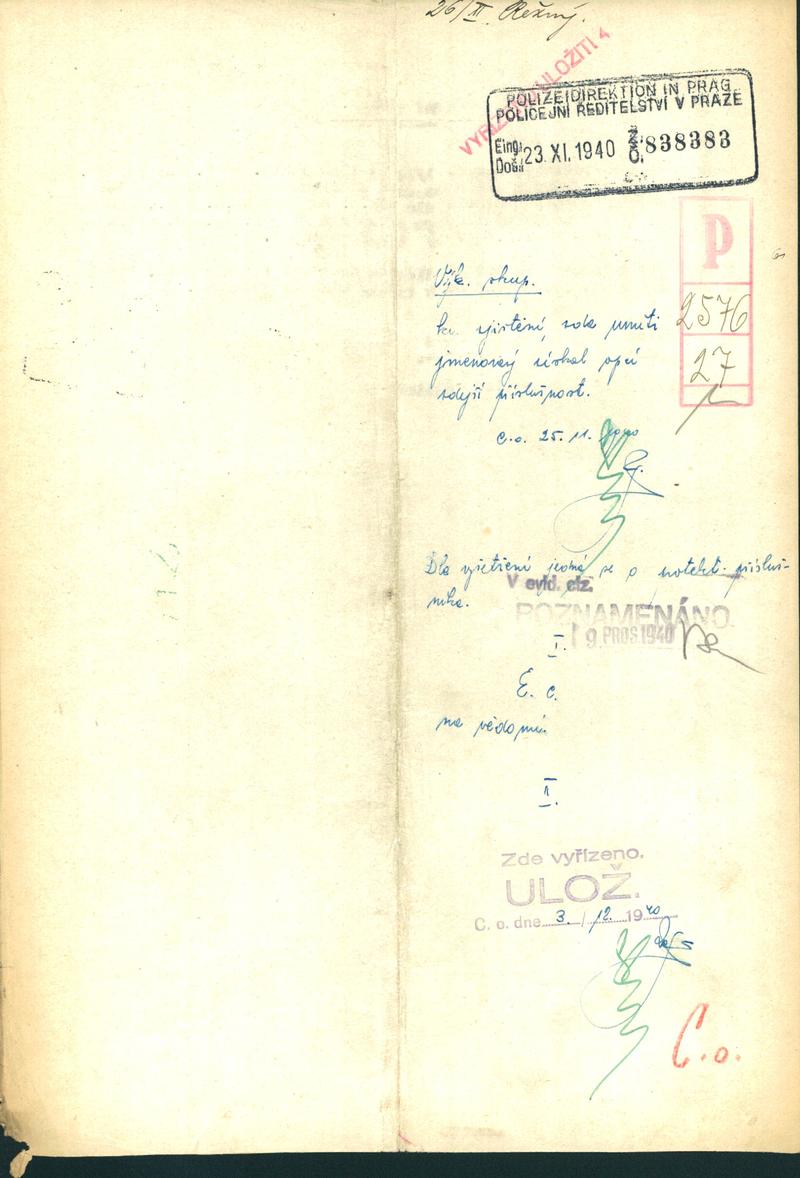 26/XI. Režný.
VYŘÍZENO ULOŽITI 4
POLIZEIDIREKTION IN PRAG
POLICEJNÍ ŘEDITELSTVÍ V PRAZE
Eing.
Došlo 23. XI. 1940 Ž. Č. 838383
P
2576
27
Výk. skup.
ku zjištění, zda uvnitř
jmenovaný získal opci
zdejší příslušnost.
C.o. 25. 11. 1940
Dle zjištění jedná se o protekt. přísluš-
níka.
V evid. ciz.
POZNAMENÁNO.
9. PROS. 1940
I.
E. c.
na vědomí.
II.
Zde vyřízeno.
ULOŽ.
C. o. dne 3. / 12. 1940
C.o.